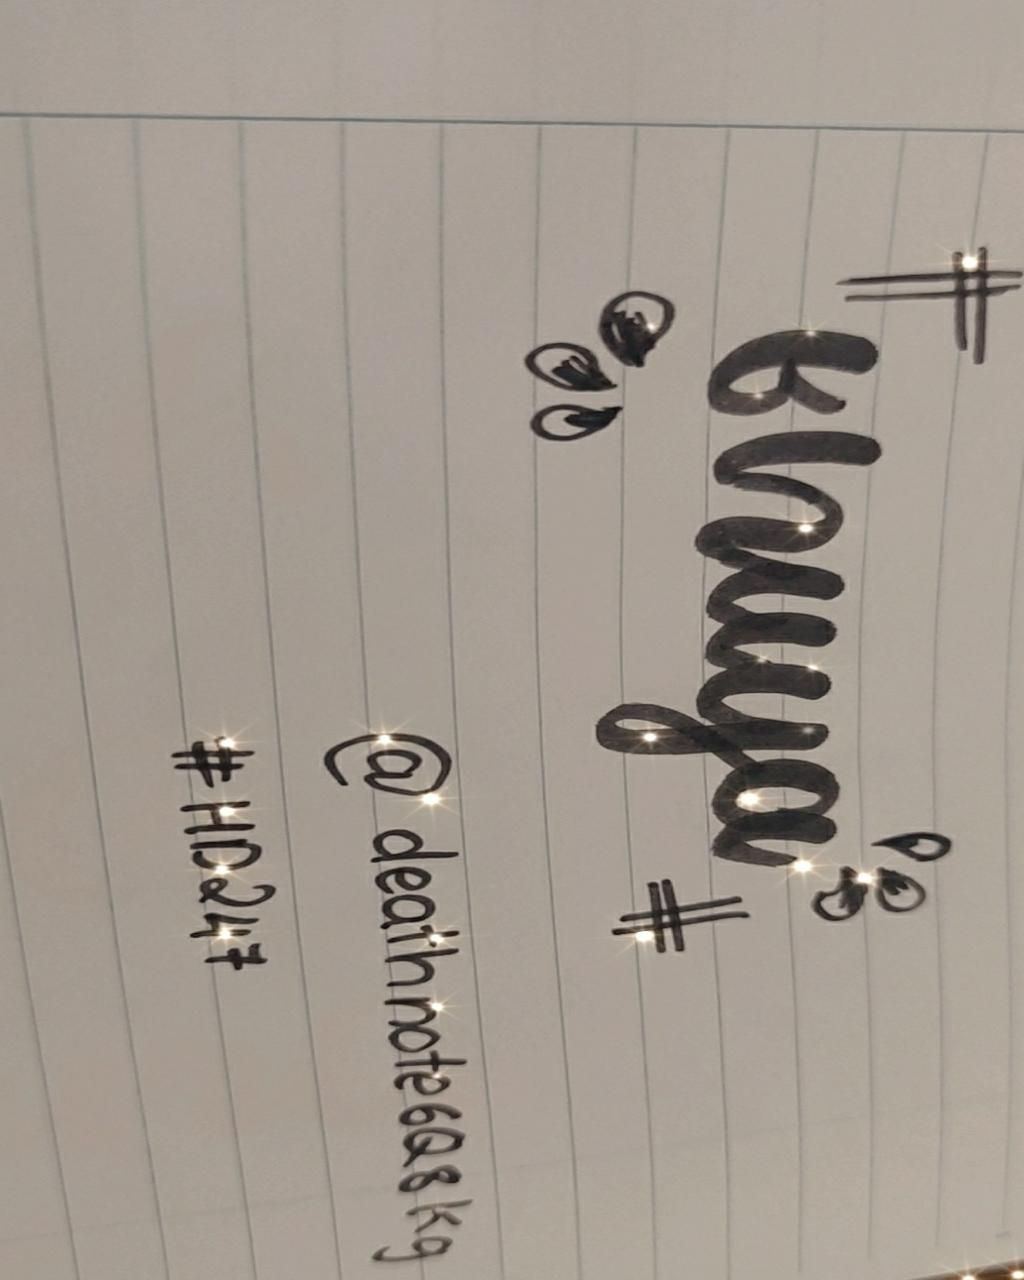 # Bhuuya #
@deathnote6Q8kg
#HD247